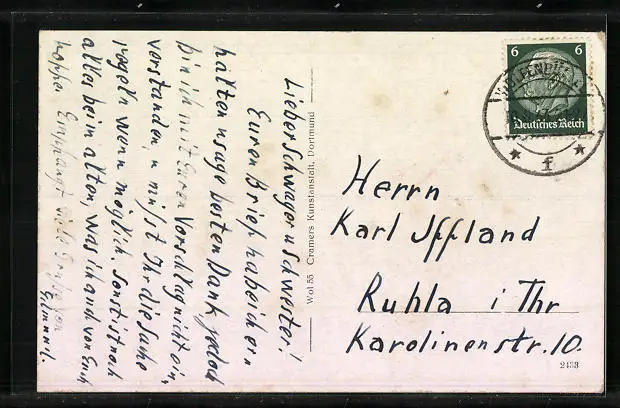 Lieber Schwager u Schwester!
Euren Brief habe ich er=
halten u sage besten Dank jedoch
bin ich mit Euren Vorschlag nicht ein,
verstanden, u müsst Ihr die Sache
regeln wenn möglich. Sonst ist noch
alles beim alten, was ich auch von Euch
hoffe. Empfangt viele Grüße von
Wol 55 Cramers Kunstanstalt, Dortmund
6 6
Deutsches Reich
f
Herrn
Karl Iffland
Ruhla i Thr
Karolinenstr. 10.
2433